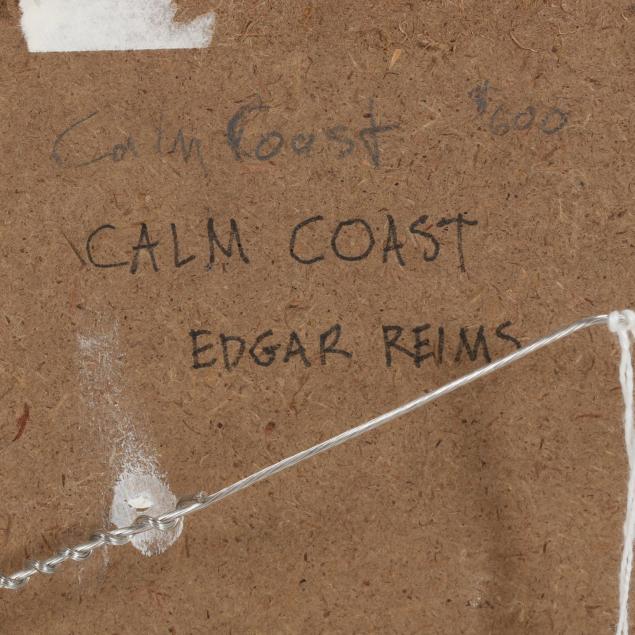 Calm Coast $600
CALM COAST
EDGAR REIMS